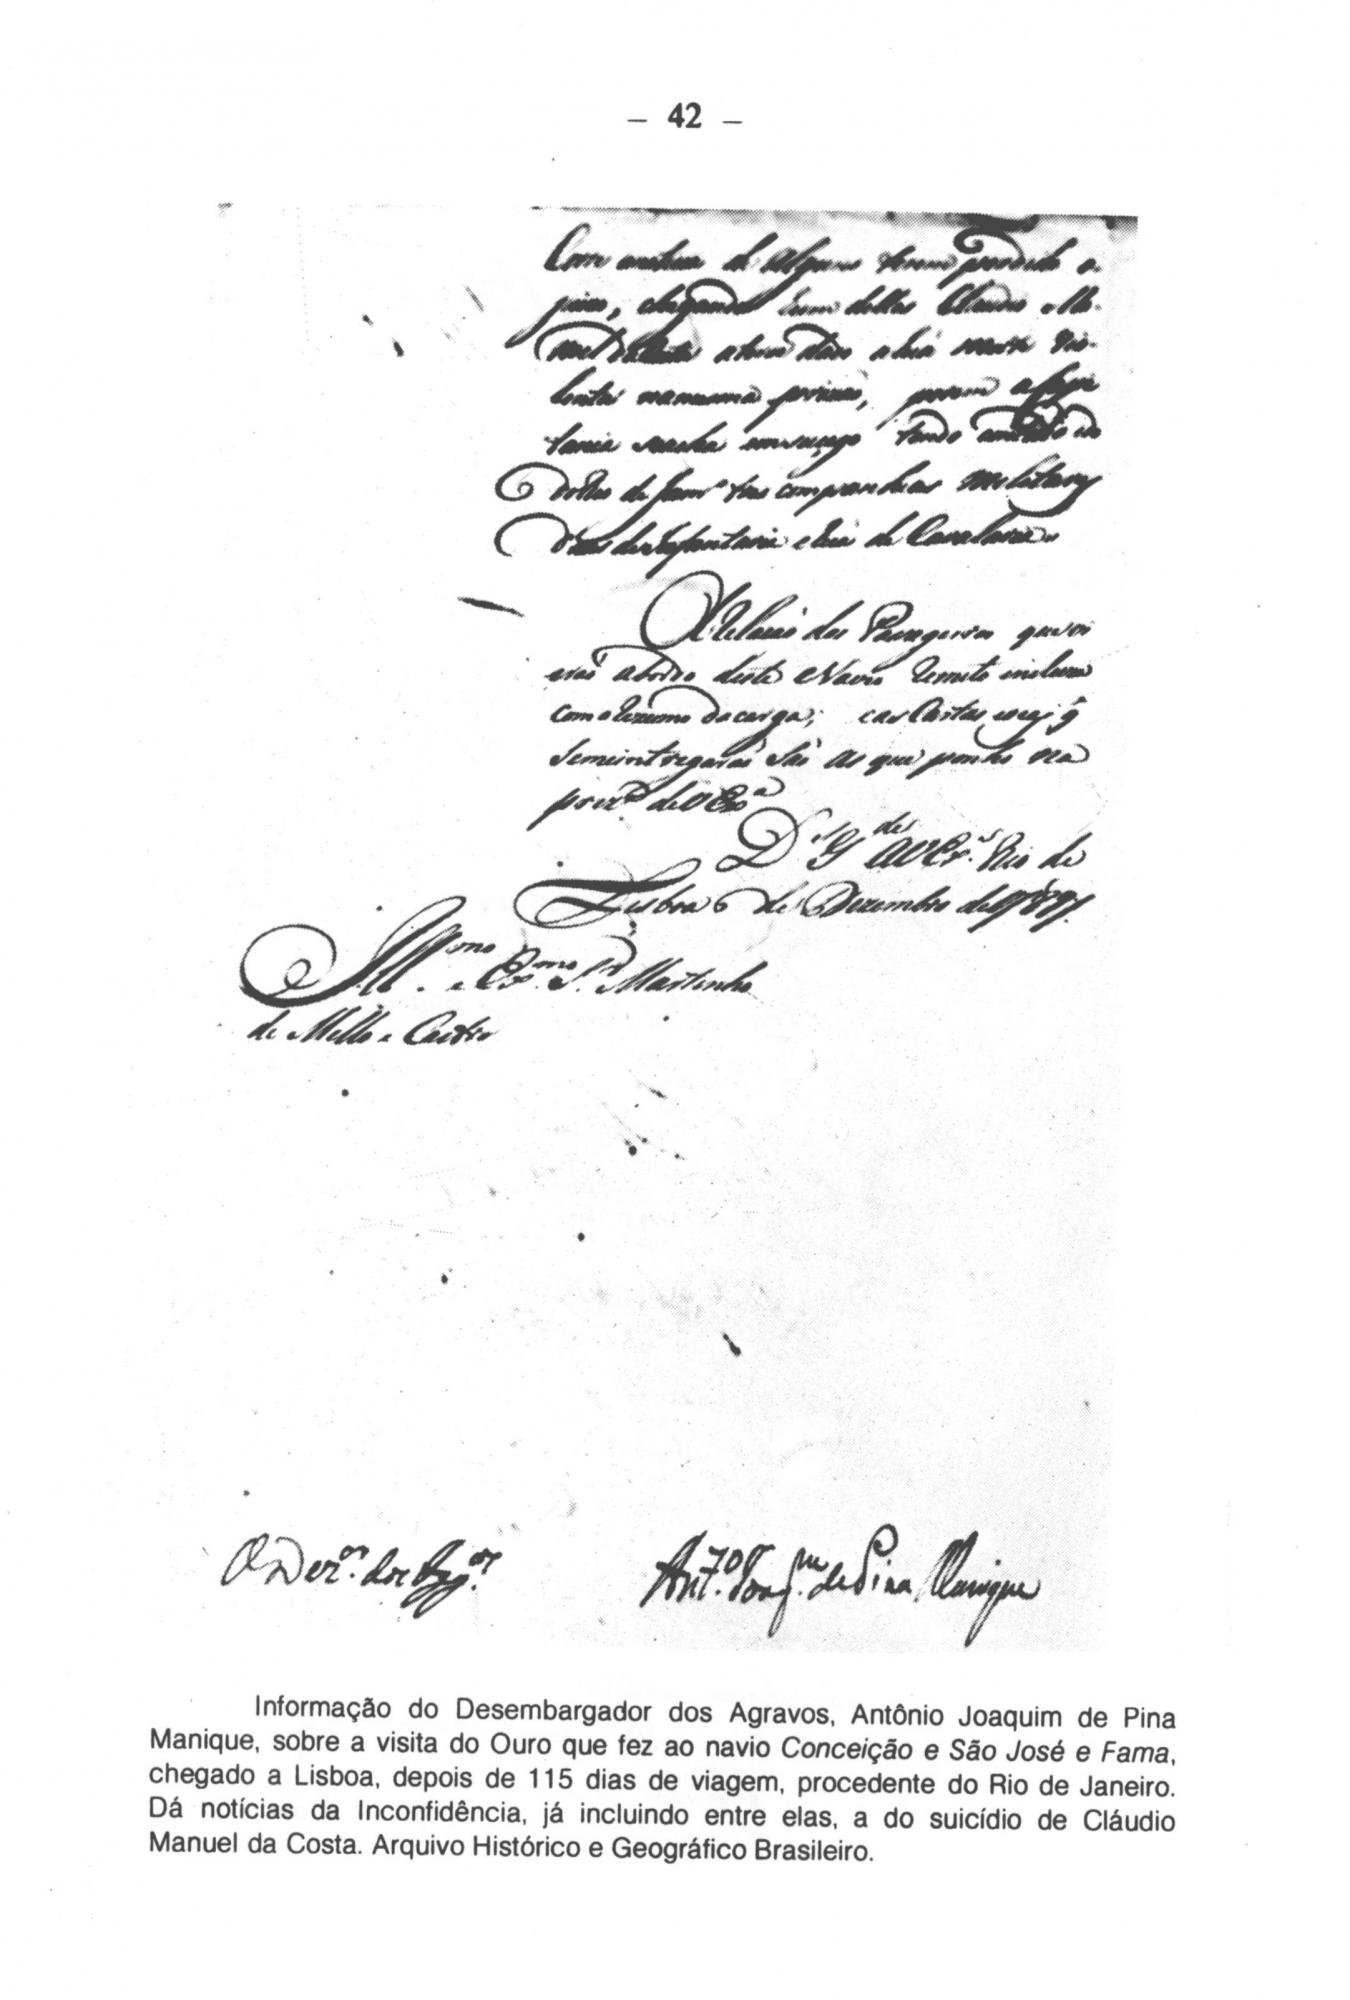 — 42 —
Com de alguns terem perdido o
juizo, chegando hum delles Claudio Ma-
noel a huá morte vio-
lenta na mesma prizaó, porem a
tania em socego tendo
do Rio de Janr.º tres companhias Militares
duas de Infantaria e huá de Cavalaria.
A Relaçaó dos Passageiros que vi
eraó abordo deste Navio remito incluza
com o rezumo da carga; e as Cartas q̃
se me intregaraó saó as que ponho na
prez.ª de V Ex.ª
D.s G.de a V Ex.ª Rio de
Lisboa 6 de Dezembro de 1789.
Ill.mo e Ex.mo S.r Martinho
de Mello e Castro
O Dez.or dos Agg.os
Ant.º Joaq.m de Pina Manique
Informação do Desembargador dos Agravos, Antônio Joaquim de Pina
Manique, sobre a visita do Ouro que fez ao navio Conceição e São José e Fama,
chegado a Lisboa, depois de 115 dias de viagem, procedente do Rio de Janeiro.
Dá notícias da Inconfidência, já incluindo entre elas, a do suicídio de Cláudio
Manuel da Costa. Arquivo Histórico e Geográfico Brasileiro.